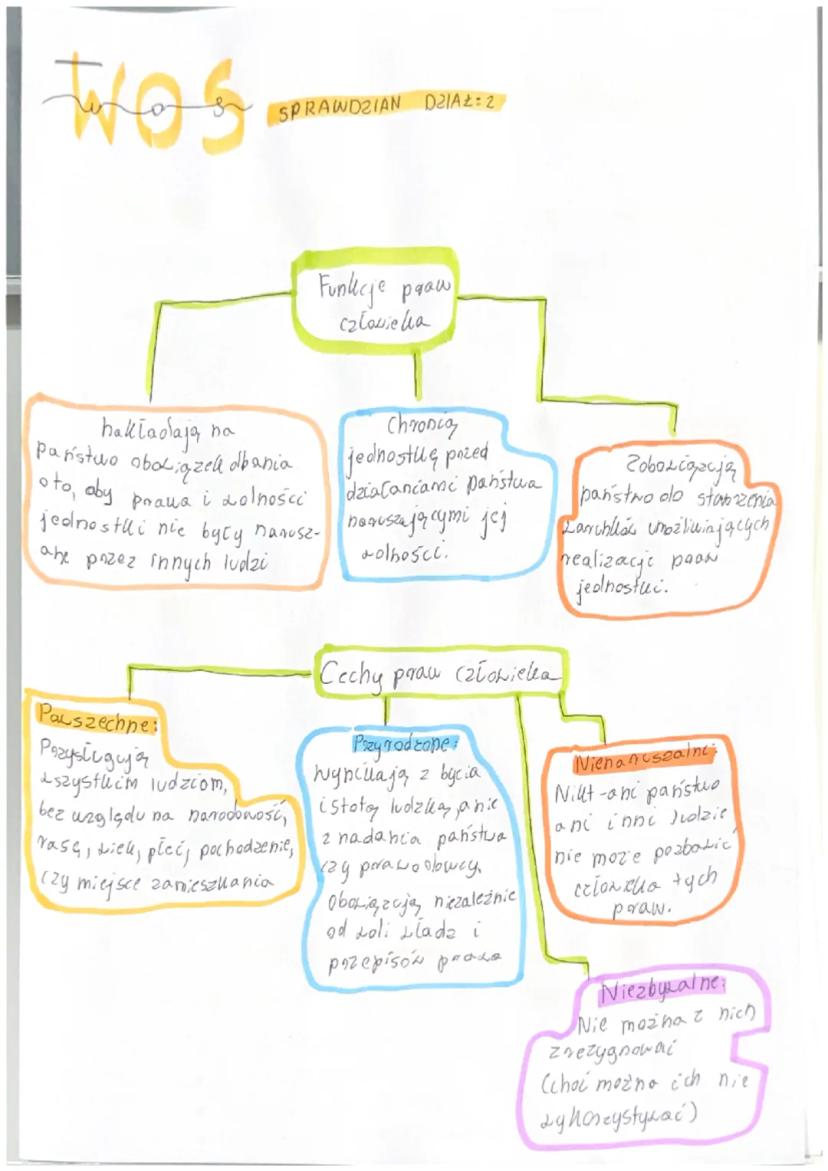 WOS
wos
SPRAWDZIAN DZIAŁ: 2
Funkcje praw
człowieka
nakładają na
państwo obowiązek dbania
oto, aby prawa i wolności
jednostki nie były narusz-
ane przez innych ludzi
Chronią
jednostkę przed
działaniami państwa
naruszającymi jej
wolności.
Zobowiązują
państwo do stworzenia
warunków umożliwiających
realizację praw
jednostki.
Cechy praw człowieka
Powszechne:
Przysługują
wszystkim ludziom,
bez względu na narodowość,
rasę, wiek, płeć, pochodzenie,
czy miejsce zamieszkania
Przyrodzone:
Wynikają z bycia
istotą ludzką, a nie
z nadania państwa
czy prawodawcy.
Obowiązują niezależnie
od woli władz i
przepisów prawa
Nienaruszalne:
Nikt - ani państwo
ani inni ludzie
nie może pozbawić
człowieka tych
praw.
Niezbywalne:
Nie można z nich
zrezygnować
(choć można ich nie
wykorzystywać)